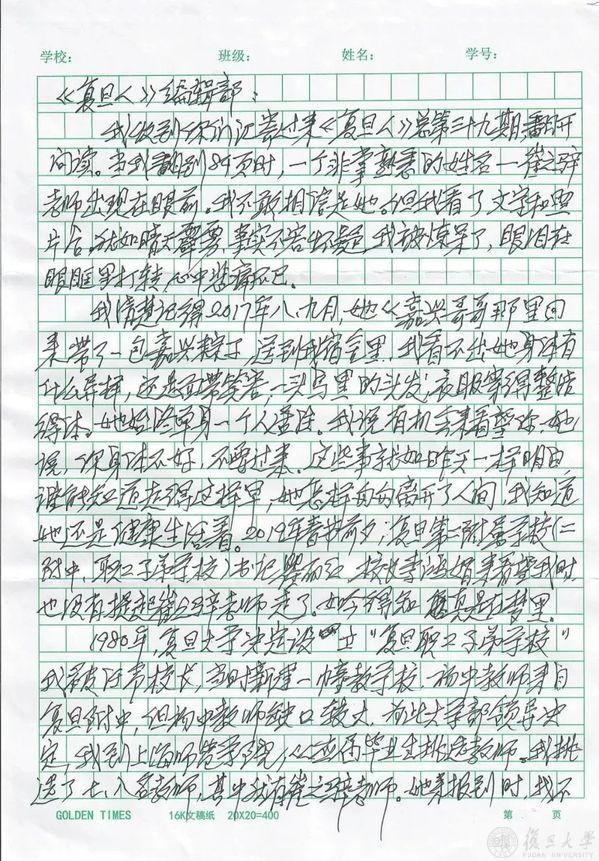 学校： 班级： 姓名： 学号：
《复旦人》编辑部：
我收到你们汇寄过来《复旦人》总第三十九期翻开
阅读。当我翻到89页时，一个非常熟悉的姓名—崔之骍
老师出现在眼前。我不敢相信是她。但我看了文字和照
片后，犹如晴天霹雳，事实不容怀疑，我被惊呆了，眼泪在
眼眶里打转，心中悲痛不已。
我清楚记得2017年八、九月，她从嘉兴哥哥那里回
来带了一包嘉兴粽子，送到我宿舍里，我看不出她身体有
什么异样，还是面带笑容，一头乌黑的头发，衣服穿得整洁
得体。她始终单身一个人潘进。我说有机会来看望你，她
说，你身体不好，不要过来。这些事就如昨天一样明白，
谁能知道走得这样早，她怎样匆匆离开了人间，我知道
她还是健康生活着。2019年春节前夕，复旦第二附属学校(二
附中、职工子弟学校)书记 校长李 来看望我时
也没有提起崔之骍老师走了。如今得知 真是在梦里。
1980年，复旦大学决定设立“复旦职工子弟学校”
我被任命校长，当时新建一幢教学楼，初中教师来自
复旦附中，但初中教师缺口较大，为此大学部领导决
定，我到上海师范学院，从应届毕业生挑选教师。我挑
选了七、八名教师，其中就有崔之骍老师。她来报到时，我不
GOLDEN TIMES 16K文稿纸 20X20=400 第 页
復旦大學
FUDAN UNIVERSITY